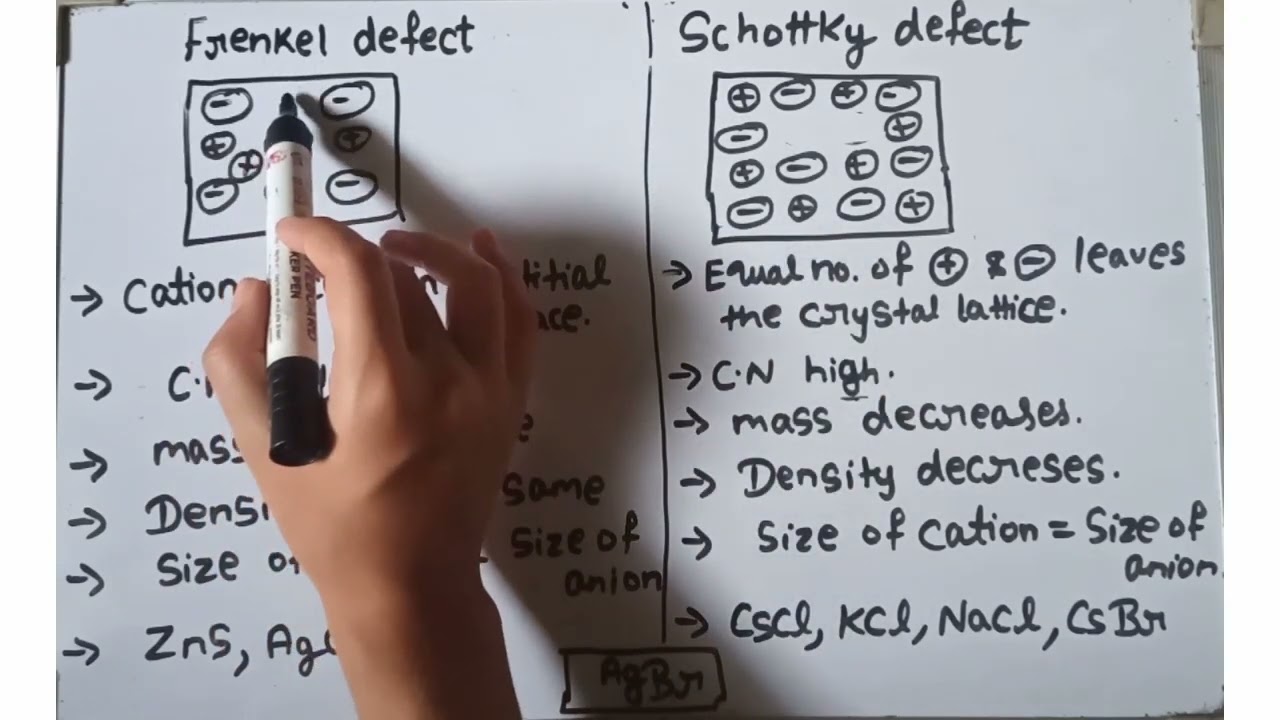 Frenkel defect
→ Cation titial
ace.
→ C.
→ mass e
→ Densi same
→ Size of size of
anion
→ ZnS, Ag
Schottky defect
→ Equal no. of ⊕ & ⊖ leaves
the crystal lattice.
→ C.N high.
→ mass decreases.
→ Density decreses.
→ Size of cation = Size of
anion.
→ CsCl, KCl, NaCl, CsBr
AgBr